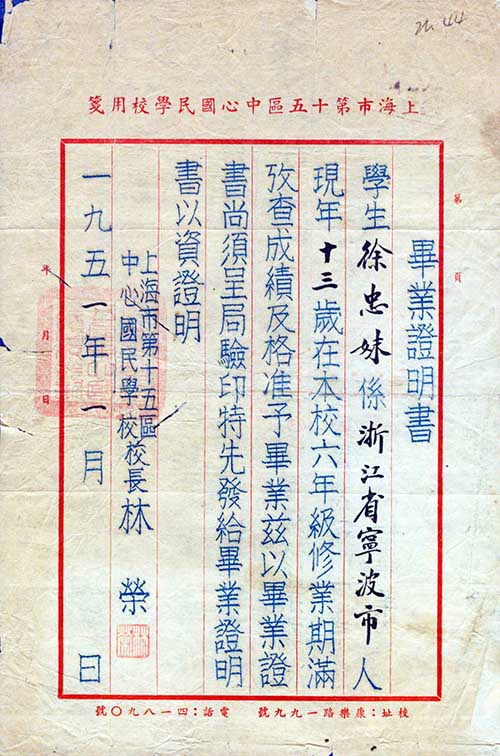 26.44
上海市第十五區中心國民學校用箋
第 頁
畢業證明書
學生徐忠妹係浙江省寧波市人
現年十三歲在本校六年級修業期滿
攷查成績及格准予畢業兹以畢業證
書尚須呈局驗印特先發給畢業證明
書以資證明
上海市第十五區
中心國民學校校長林 榮
一九五一年一月 日
年 月 日
校址：康樂路一九九號 電話：四一八九〇號